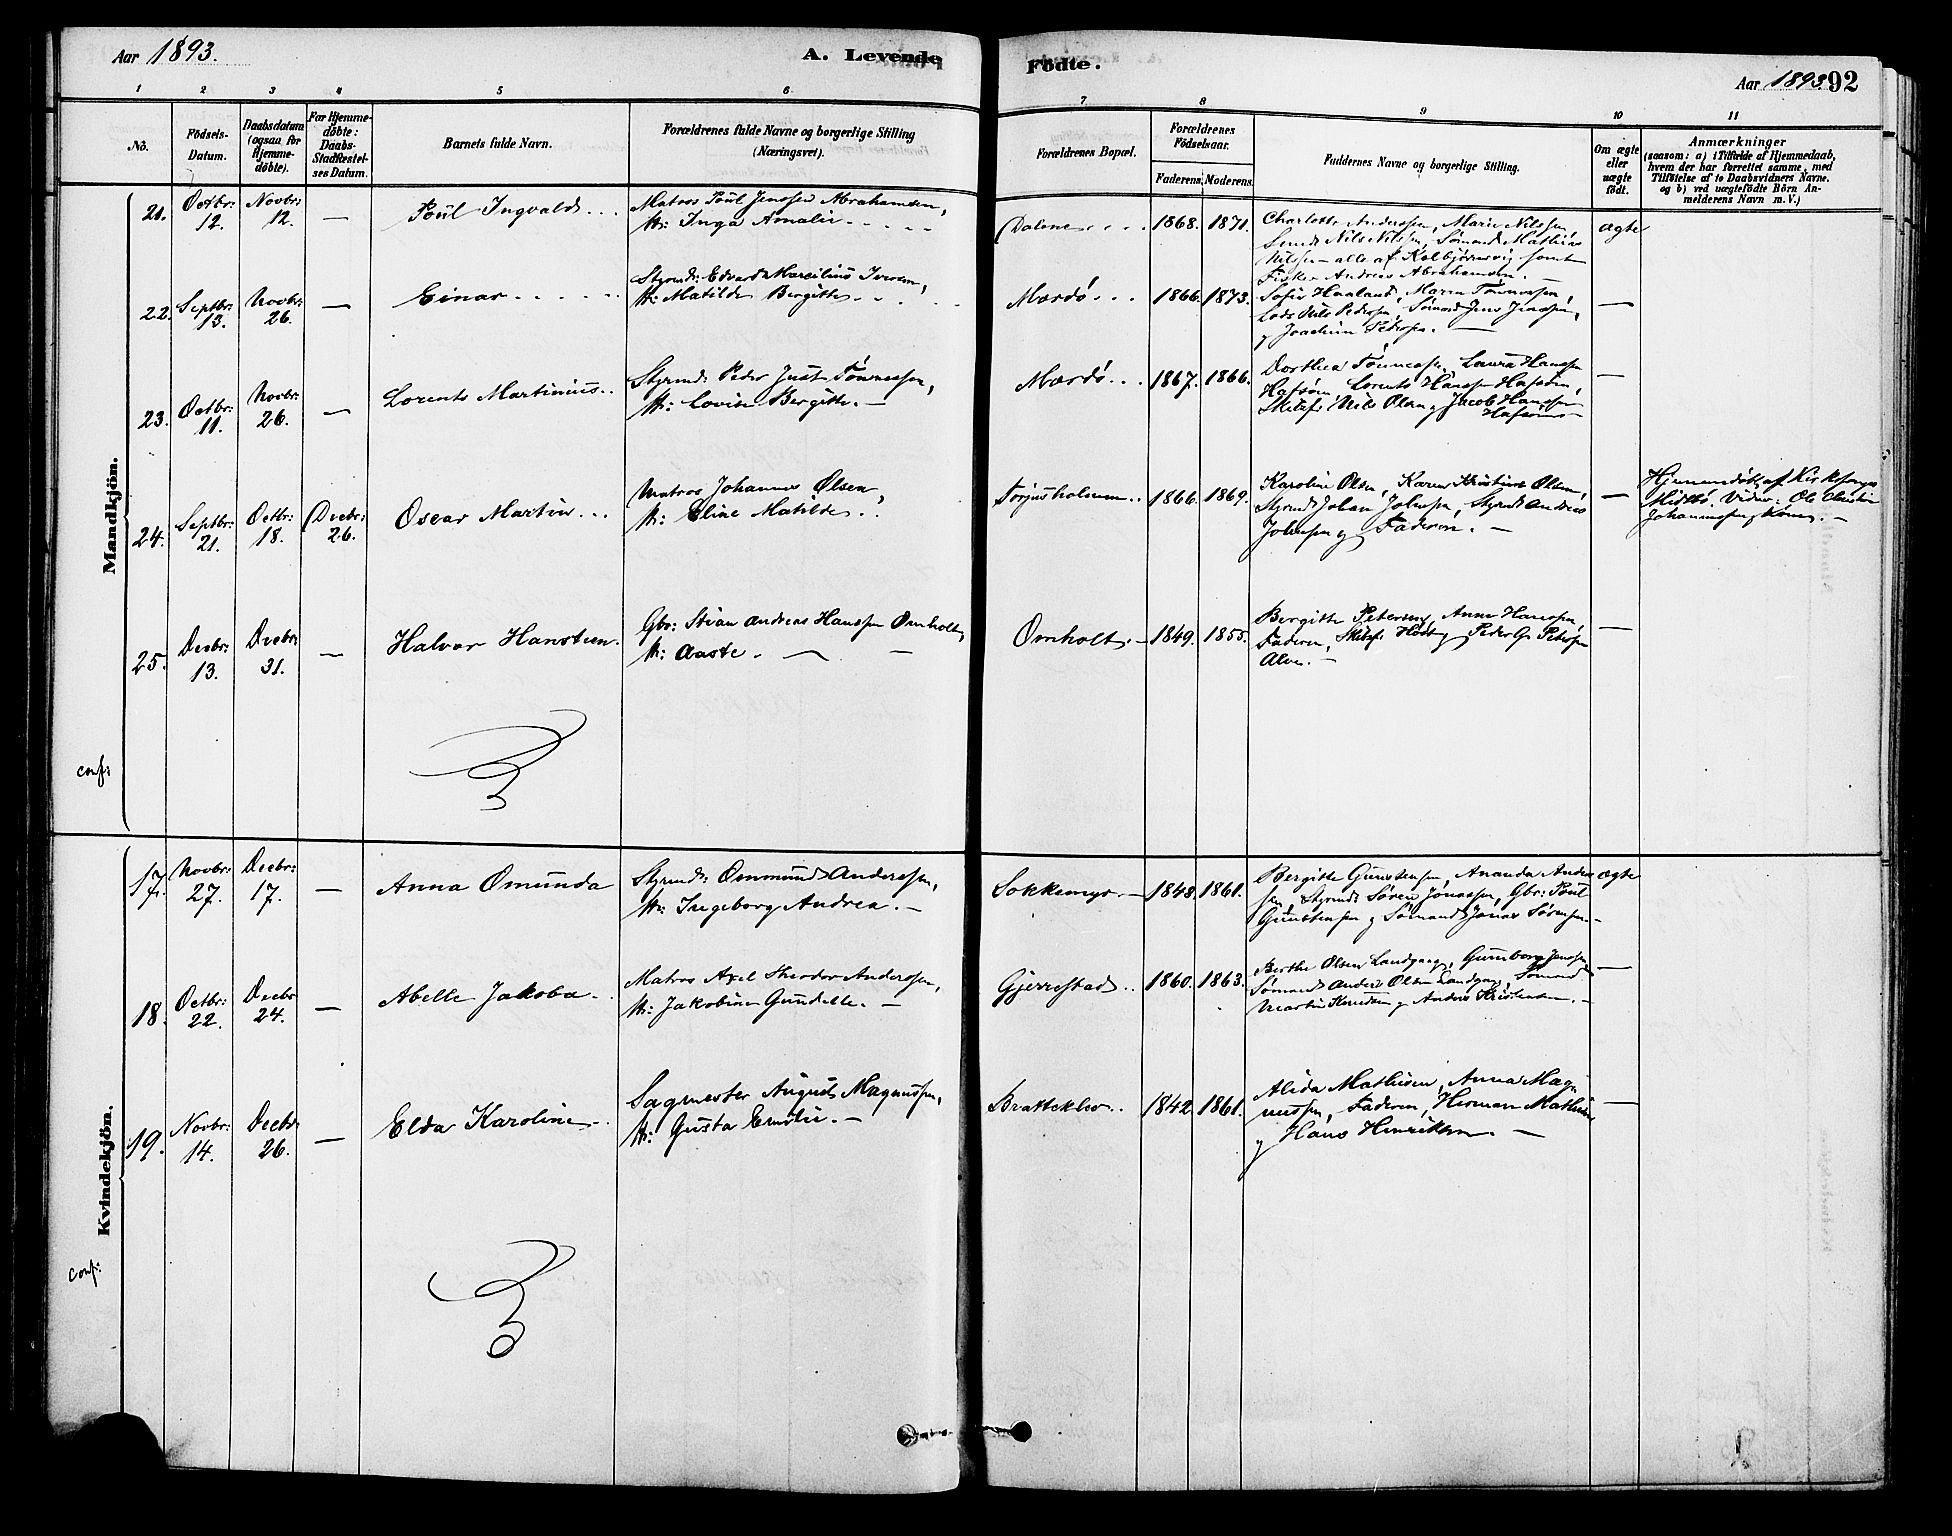 Aar 1893.
A. Levende
Födte.
Aar 1893.
92
1
2
3
4
5
6
7
8
9
10
11
No.
Födsels-
Datum.
Daabsdatum
(ogsaa for
Hjemme-
döbte).
For Hjemme-
döbte:
Daabs-
Stadfæstel-
ses Datum.
Barnets fulde Navn.
Forældrenes fulde Navne og borgerlige Stilling
(Næringsvei).
Forældrenes Bopæl.
Forældrenes
Födselsaar.
Faderens.
Moderens.
Faddernes Navne og borgerlige Stilling.
Om ægte
eller
uægte
födt.
Anmærkninger
(saasom: a) i Tilfælde af Hjemmedaab,
hvem der har forrettet samme, med
Tilföielse af to Daabsvidners Navne.
og b) ved uægtefödte Börn An-
melderens Navn m. V.)
Mandkjön.
21.
Octbr:
12.
Novbr:
12.
—
Poul Ingvald
Matros Poul Jenssen Abrahamsen,
Hr: Inga Amalie
Dalene
1868.
1871.
Charlotte Anderssen, Marie Nilssen,
Nils Nilssen, Sömand Mathias
Nilssen – alle af Kolbjörnsvig samt
Fisker Andreas Abrahamsen. —
ægte
22.
Septbr:
13.
Novbr:
26.
—
Einar
Styrmd: Edvard Marcilius Iversen,
Hr: Matilde Bergitte
Mærdö
1866.
1873.
Sofie Haaland, Maren Tönnessen,
Lods Nils Pederssen, Sömand Jens Jenssen,
g Joachim Pederssen. —
—
23.
Octbr:
11.
Novbr:
26.
—
Lorents Martinius
Styrmd: Peder Just Tönnessen,
Hr: Lovise Bergitte. —
Mærdö
1867.
1866.
Dorthea Tönnessen, Laura Hanssen
Hafsöen, Lorents Hanssen Hafsöen,
Nils Olsen g Jacob Hanssen
—
24.
Septbr:
21.
Octbr:
18.
Decbr:
26.
Oscar Martin
Matros Johannes Olsen,
Hr: Eline Matilde
Torjusholmen
1866.
1869.
Karoline Olsen, Karen Kristine Olsen,
Styrmd: Johan Johnssen, Styrmd: Andreas
Johnssen g Faderen. —
—
Hjemmedöbt af Kirkesanger
Midtbö. Vidner: Ole Christian
Johannessen g Kone. —
25.
Decbr:
13.
Decbr:
31.
—
Halvor Hansteen
Gbr: Stian Andreas Hanssen Omholt,
Hr: Aaste. —
Omholt. —
1849.
1855.
Bergitte Petersen, Anne Hanssen,
Faderen, g Peder G. Peterssen
Alve. —
—
conf:
Kvindekjön.
17.
Novbr:
27.
Decbr:
17.
—
Anna Omunda
Styrmd: Ommund Anderssen,
Hr: Ingeborg Andrea. —
Sokkemyr. —
1848.
1861.
Bergitte Gunstensen, Ananda Ander
sen, Styrmd: Sören Jonassen, Gbr: Poul
Gunstensen g Sömand Jonas Sörensen. —
ægte
18.
Octbr:
22.
Decbr:
24.
—
Abelle Jakoba
Matros Axel Theodor Anderssen,
Hr: Jakobine Gundelle. —
Gjerrestad
1860.
1863.
Berthe Olsen Landgang, Gunborg Jenssen,
Sömand Anders Olsen Landgang, Sömand
Martin Knudsen g Anders Kristensen. —
—
19.
Novbr:
14.
Decbr:
26.
—
Elda Karoline
Sagmester August Magnussen,
Hr: Gusta Emilie. —
Brattekleo
1842.
1861.
Alida Mathisen, Anna Mag
nussen, Faderen, Herman Mathisen
g Hans Henriksen. —
—
conf: